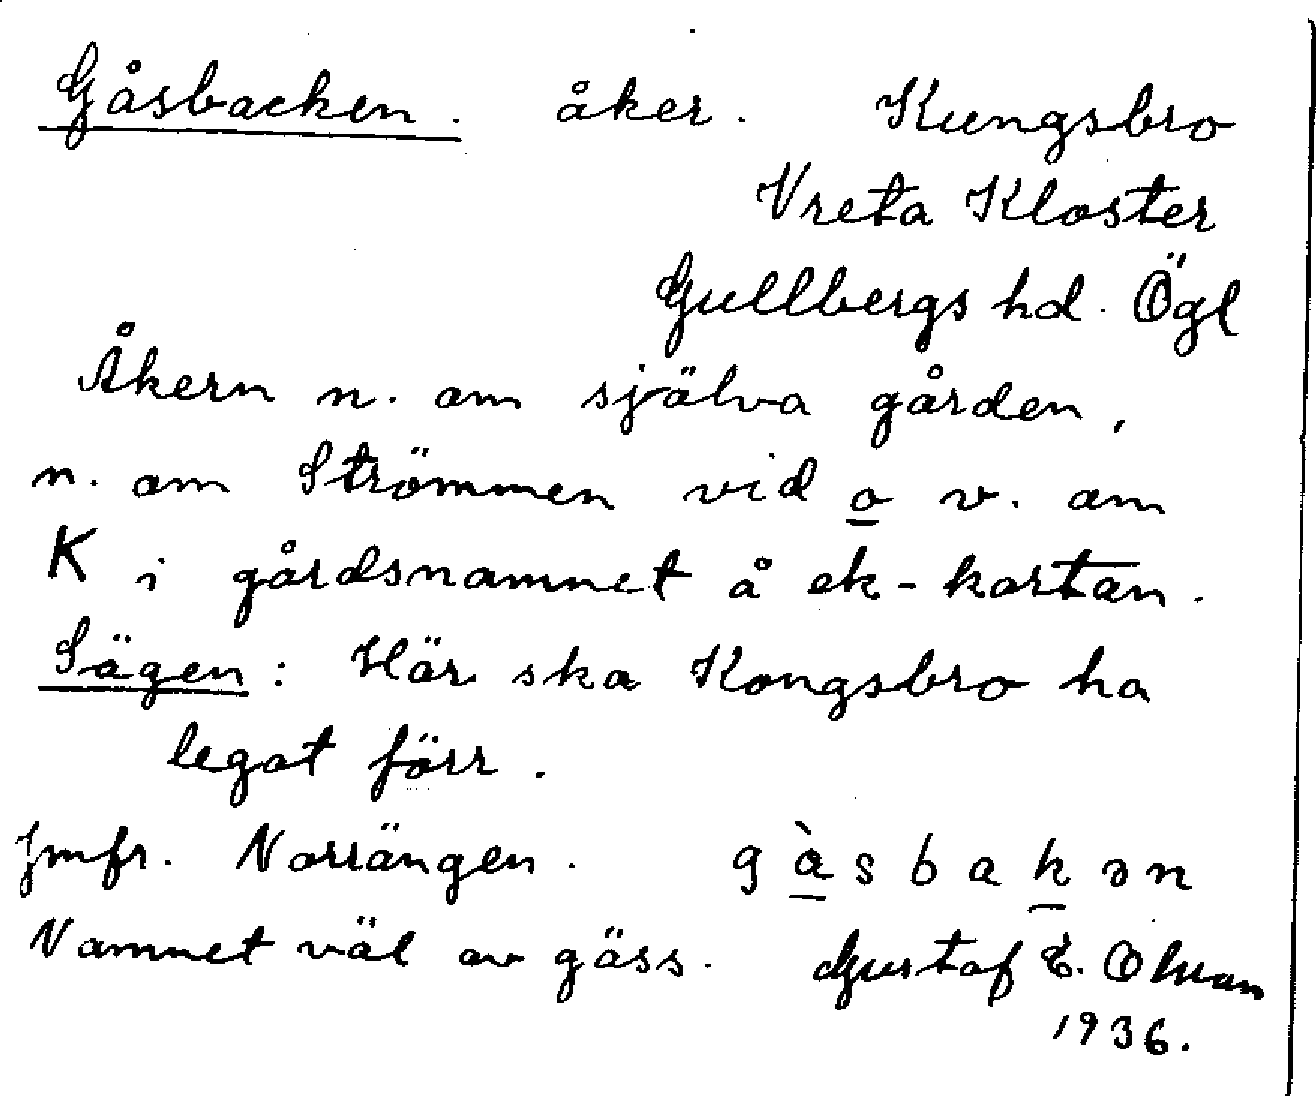 Gåsbacken. åker. Kungsbro
Vreta Kloster
Gullbergs hd. Ögl
Åkern n. om själva gården,
n. om Strömmen vid o v. om
K i gårdsnamnet å ek-kartan.
Sägen: Här ska Kongsbro ha
legat förr.
Jmfr. Norrängen. gàsbakən
Namnet väl av gäss. Gustaf E. Olson
1936.